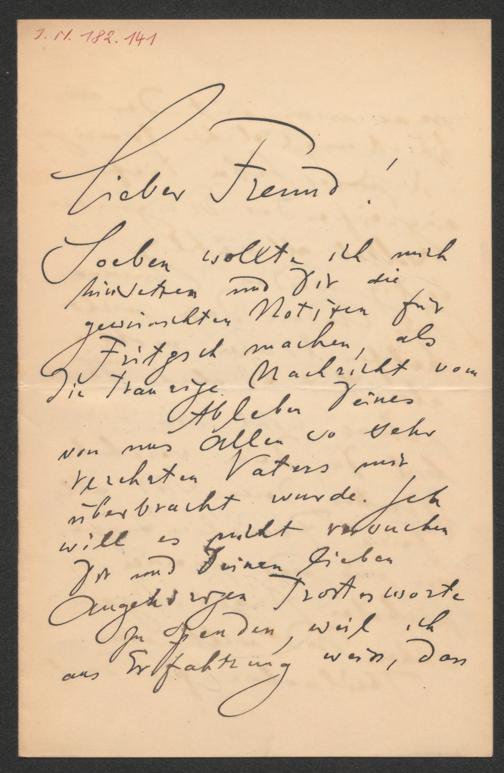 I. N. 182.141
Lieber Freund!
Soeben wollte ich mich
hinsetzen und Dir die
gewünschten Notizen für
Fritzsch machen, als
die traurige Nachricht vom
Ableben Deines
von uns allen so sehr
verehrten Vaters mir
überbracht wurde. Ich
will es nicht versuchen
Dir und Deinen lieben
Angehörigen Trostesworte
zu spenden, weil ich
aus Erfahrung weiss, dass